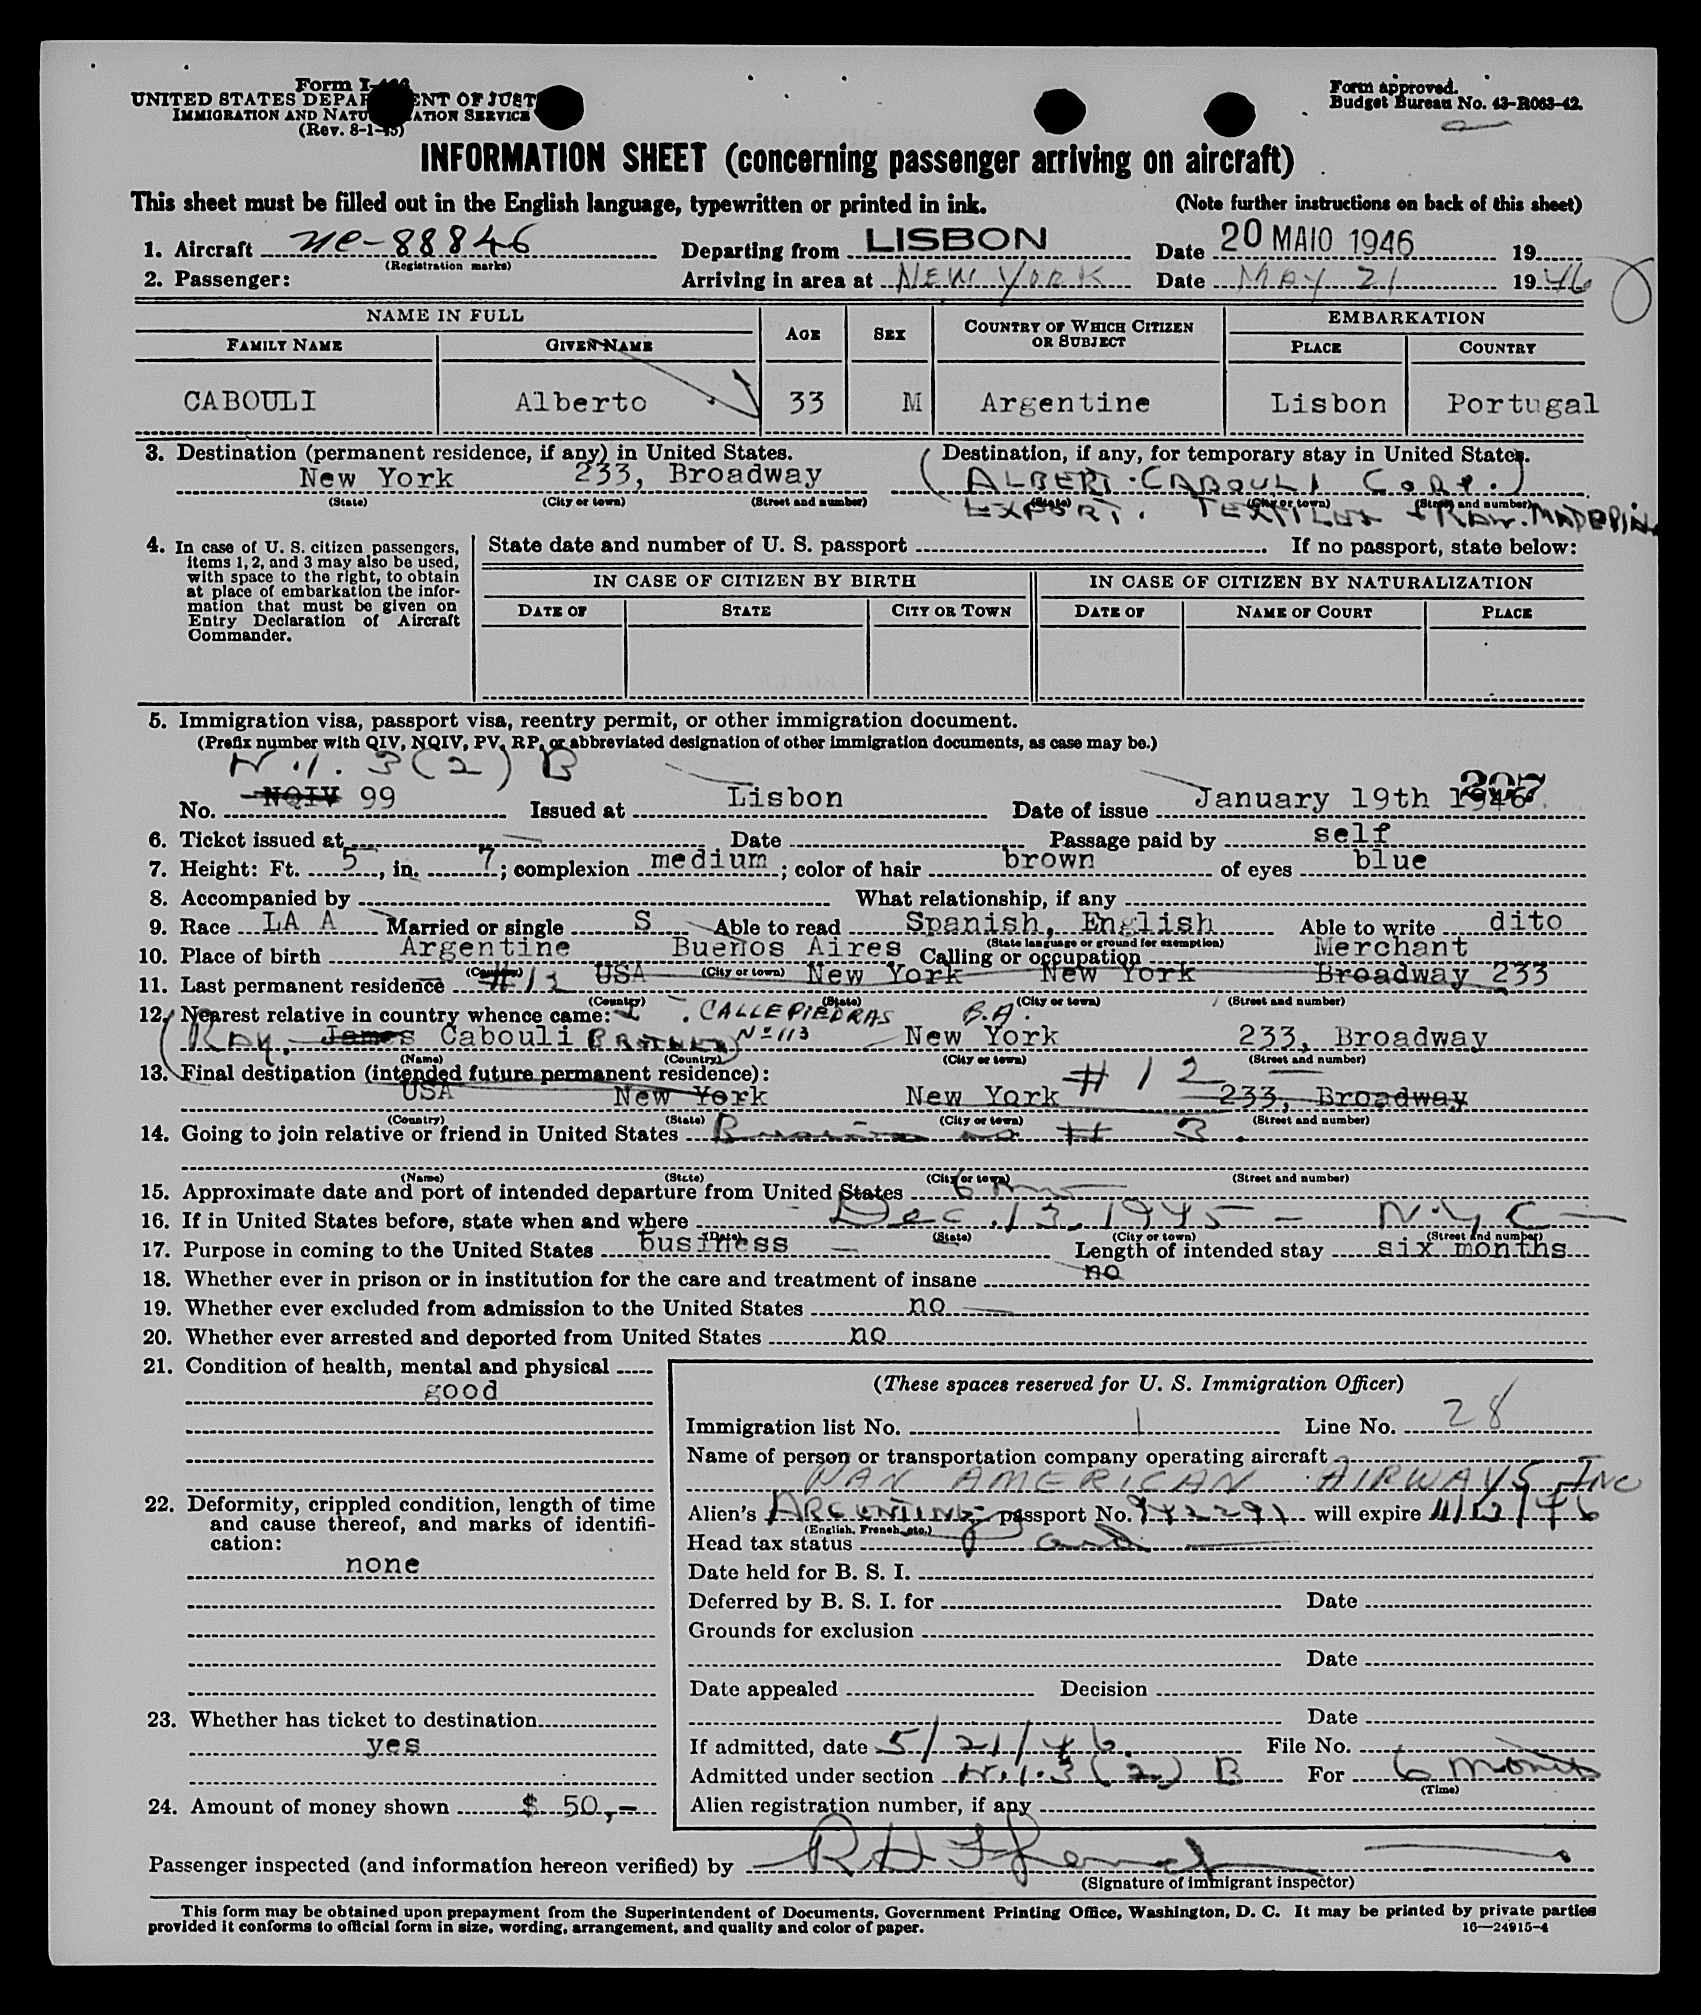 Form I-
UNITED STATES DEPARTMENT OF JUSTICE
IMMIGRATION AND NATURALIZATION SERVICE
(Rev. 8-1-45)
Form approved.
Budget Bureau No. 43-R063-42.
INFORMATION SHEET (concerning passenger arriving on aircraft)
This sheet must be filled out in the English language, typewritten or printed in ink. (Note further instructions on back of this sheet)
1. Aircraft NC-88846 Departing from LISBON Date 20 MAIO 1946 19
(Registration marks)
2. Passenger: Arriving in area at NEW YORK Date MAY 21 1946
NAME IN FULL AGE SEX COUNTRY OF WHICH CITIZEN OR SUBJECT EMBARKATION
FAMILY NAME GIVEN NAME PLACE COUNTRY
CABOULI Alberto 33 M Argentine Lisbon Portugal
3. Destination (permanent residence, if any) in United States. Destination, if any, for temporary stay in United States.
New York 233, Broadway (ALBERT CABOULI CORP.)
(State) (City or town) (Street and number) (State) (City or town) (Street and number)
EXPORT. TEXTILES + RAW.
4. In case of U. S. citizen passengers, items 1, 2, and 3 may also be used, with space to the right, to obtain at place of embarkation the information that must be given on Entry Declaration of Aircraft Commander.
State date and number of U. S. passport If no passport, state below:
IN CASE OF CITIZEN BY BIRTH IN CASE OF CITIZEN BY NATURALIZATION
DATE OF STATE CITY OR TOWN DATE OF NAME OF COURT PLACE
5. Immigration visa, passport visa, reentry permit, or other immigration document.
(Prefix number with QIV, NQIV, PV, RP, or abbreviated designation of other immigration documents, as case may be.)
3(2) B
207
No. NQIV 99 Issued at Lisbon Date of issue January 19th 1946
6. Ticket issued at Date Passage paid by self
7. Height: Ft. 5, in. 7; complexion medium; color of hair brown of eyes blue
8. Accompanied by What relationship, if any
9. Race LA A Married or single S Able to read Spanish, English Able to write dito
(State language or ground for exemption)
10. Place of birth Argentine Buenos Aires Calling or occupation Merchant
(Country) (City or town)
11. Last permanent residence #13 USA New York New York Broadway 233
(Country) (State) (City or town) (Street and number)
12. Nearest relative in country whence came: CALLE PIEDRAS B.A.
(RAY. James Cabouli BROTHER) Nº 113 New York 233, Broadway
(Name) (Country) (City or town) (Street and number)
13. Final destination (intended future permanent residence): #12
USA New York New York 233, Broadway
(Country) (State) (City or town) (Street and number)
14. Going to join relative or friend in United States Business # 3.
(Name) (State) (City or town) (Street and number)
15. Approximate date and port of intended departure from United States 6 mos
16. If in United States before, state when and where Dec. 13, 1945 - N.Y.C
(Date) (State) (City or town) (Street and number)
17. Purpose in coming to the United States business Length of intended stay six months
18. Whether ever in prison or in institution for the care and treatment of insane no
19. Whether ever excluded from admission to the United States no
20. Whether ever arrested and deported from United States no
21. Condition of health, mental and physical
good
22. Deformity, crippled condition, length of time and cause thereof, and marks of identification:
none
23. Whether has ticket to destination
yes
24. Amount of money shown $ 50,-
(These spaces reserved for U. S. Immigration Officer)
Immigration list No. 1 Line No. 28
Name of person or transportation company operating aircraft
PAN AMERICAN AIRWAYS INC
Alien's ARGENTINE passport No. will expire
(English, French, etc.)
Head tax status
Date held for B. S. I.
Deferred by B. S. I. for Date
Grounds for exclusion
Date
Date appealed Decision
Date
If admitted, date 5/21/46. File No.
Admitted under section 3(2) B For 6 months
(Time)
Alien registration number, if any
Passenger inspected (and information hereon verified) by
(Signature of immigrant inspector)
This form may be obtained upon prepayment from the Superintendent of Documents, Government Printing Office, Washington, D. C. It may be printed by private parties
provided it conforms to official form in size, wording, arrangement, and quality and color of paper. 16—24915-4